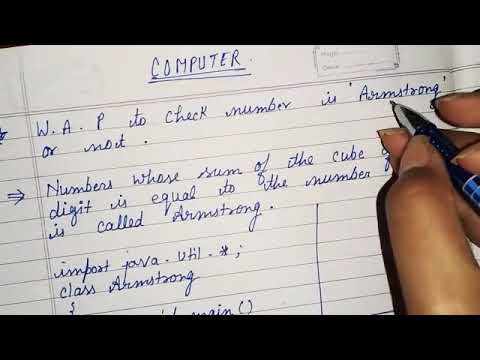 COMPUTER.
W.A.P to check number is 'Armstrong'
or not.
⇒ Numbers whose sum of the cube
digit is equal to the number
is called Armstrong.
import java.util.*;
class Armstrong
{
main()